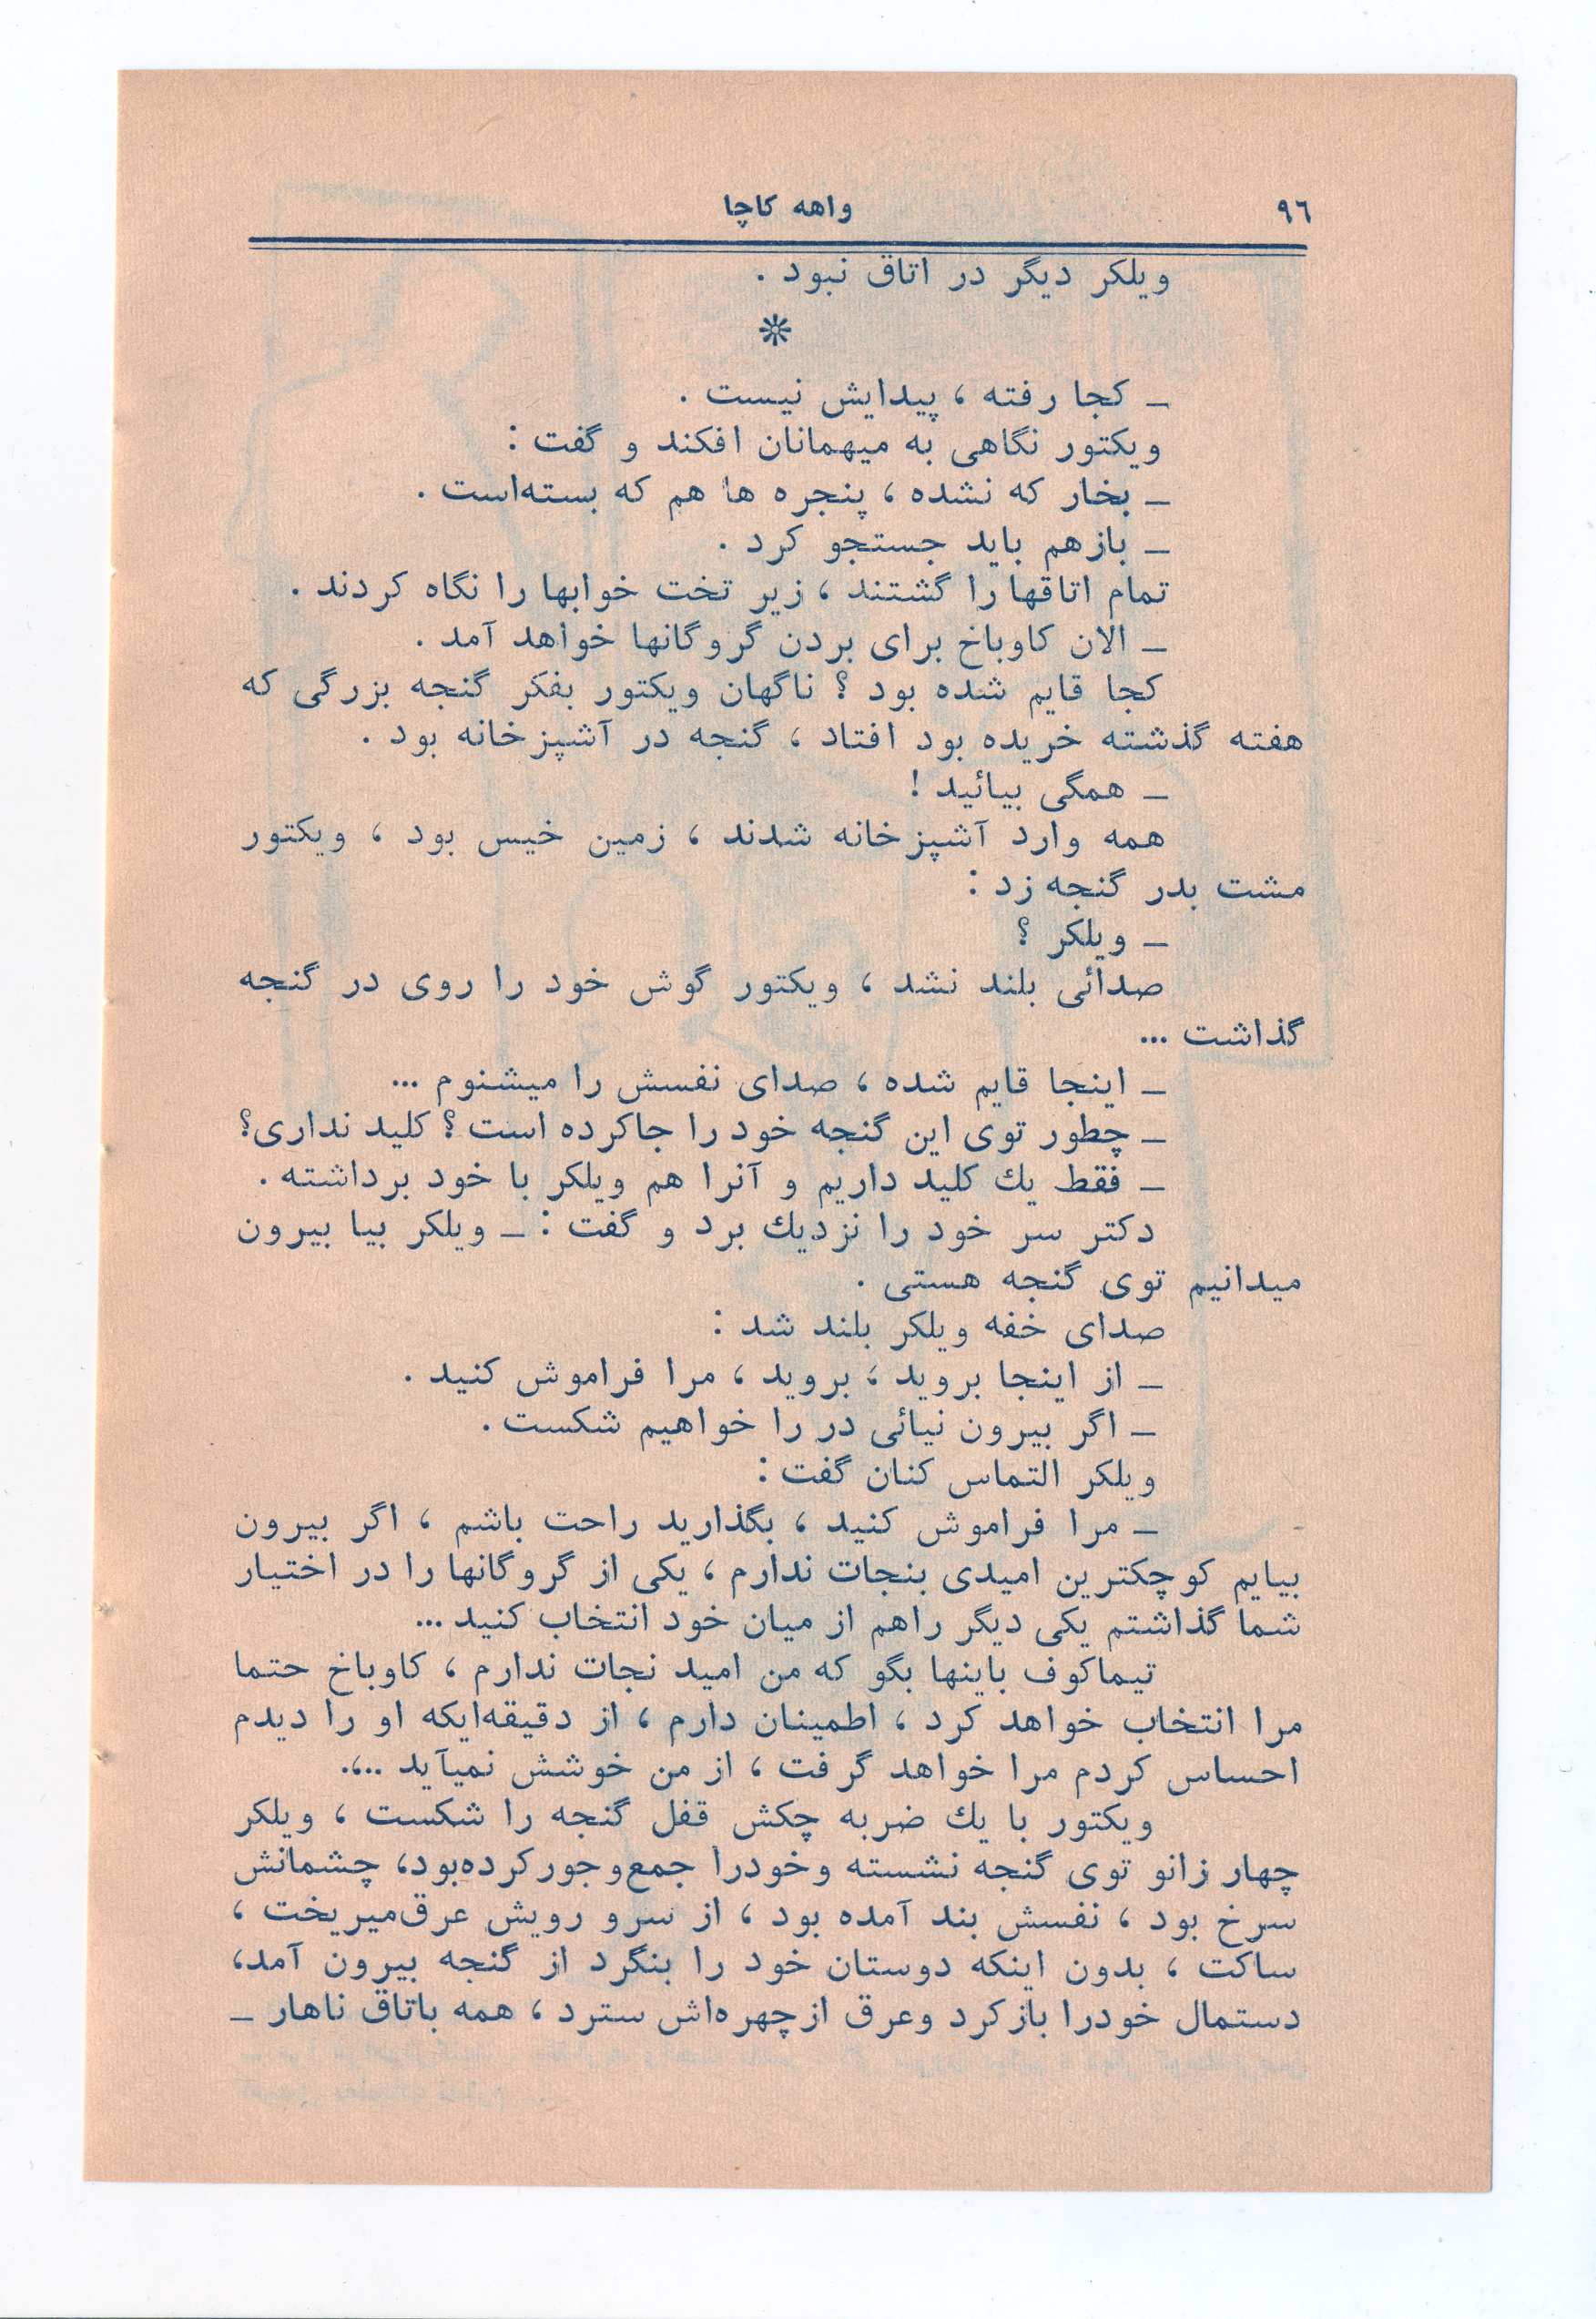 ۹٦
واهه کاچا
ویلکر دیگر در اتاق نبود .
*
ـ کجا رفته ، پیدایش نیست .
ویکتور نگاهی به میهمانان افکند و گفت :
ـ بخار که نشده ، پنجره ها هم که بسته‌است .
ـ بازهم باید جستجو کرد .
تمام اتاقها را گشتند ، زیر تخت خوابها را نگاه کردند .
ـ الان کاوباخ برای بردن گروگانها خواهد آمد .
کجا قایم شده بود ؟ ناگهان ویکتور بفکر گنجه بزرگی که
هفته گذشته خریده بود افتاد ، گنجه در آشپزخانه بود .
ـ همگی بیائید !
همه وارد آشپزخانه شدند ، زمین خیس بود ، ویکتور
مشت بدر گنجه زد :
ـ ویلکر ؟
صدائی بلند نشد ، ویکتور گوش خود را روی در گنجه
گذاشت ...
ـ اینجا قایم شده ، صدای نفسش را میشنوم ...
ـ چطور توی این گنجه خود را جاکرده است ؟ کلید نداری؟
ـ فقط یك کلید داریم و آنرا هم ویلکر با خود برداشته .
دکتر سر خود را نزدیك برد و گفت : ـ ویلکر بیا بیرون
میدانیم توی گنجه هستی .
صدای خفه ویلکر بلند شد :
ـ از اینجا بروید ، بروید ، مرا فراموش کنید .
ـ اگر بیرون نیائی در را خواهیم شکست .
ویلکر التماس کنان گفت :
ـ مرا فراموش کنید ، بگذارید راحت باشم ، اگر بیرون
بیایم کوچکترین امیدی بنجات ندارم ، یکی از گروگانها را در اختیار
شما گذاشتم یکی دیگر راهم از میان خود انتخاب کنید ...
تیماکوف باینها بگو که من امید نجات ندارم ، کاوباخ حتما
مرا انتخاب خواهد کرد ، اطمینان دارم ، از دقیقه‌ایکه او را دیدم
احساس کردم مرا خواهد گرفت ، از من خوشش نمیآید ..،.
ویکتور با یك ضربه چکش قفل گنجه را شکست ، ویلکر
چهار زانو توی گنجه نشسته وخودرا جمع‌وجورکرده‌بود، چشمانش
سرخ بود ، نفسش بند آمده بود ، از سرو رویش عرق‌میریخت ،
ساکت ، بدون اینکه دوستان خود را بنگرد از گنجه بیرون آمد،
دستمال خودرا بازکرد وعرق ازچهره‌اش سترد ، همه باتاق ناهار ـ